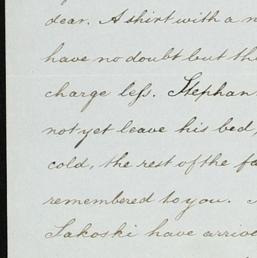 dear. A shirt with a n
have no doubt but th
charge less. Stephan
not yet leave his bed,
cold, the rest of the fa
remembered to you.
Sakoski have arrive